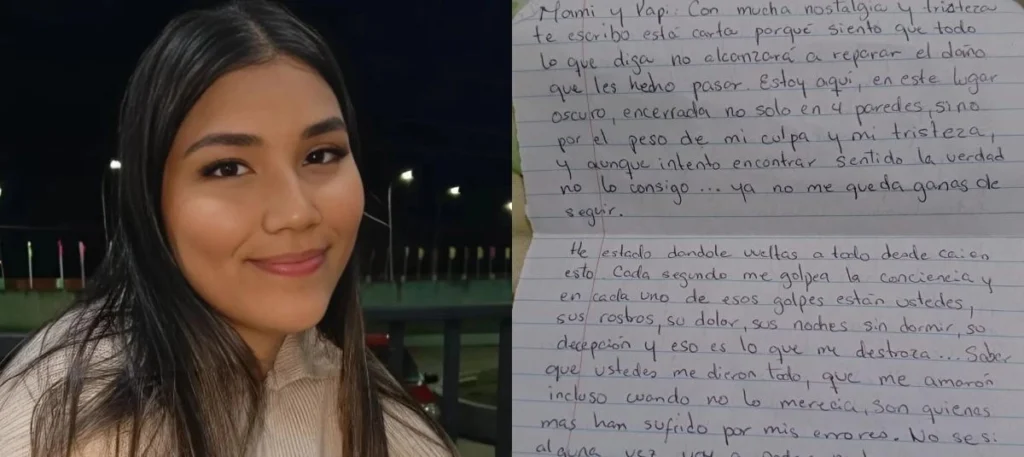 Mami y Papi: Con mucha nostalgia y tristeza
te escribo esta carta porque siento que todo
lo que diga no alcanzará a reparar el daño
que les hecho pasar. Estoy aquí, en este lugar
oscuro, encerrada no solo en 4 paredes, sino
por el peso de mi culpa y mi tristeza,
y aunque intento encontrar sentido la verdad
no lo consigo... ya no me queda ganas de
seguir.
He estado dandole vueltas a todo desde cai en
esto. Cada segundo me golpea la conciencia y
en cada uno de esos golpes están ustedes,
sus rostros, su dolor, sus noches sin dormir, su
decepción y eso es lo que me destroza... Saber
que ustedes me dieron todo, que me amarón
incluso cuando no lo merecia, son quienes
mas han sufrido por mis errores. No se si
alguna vez voy a